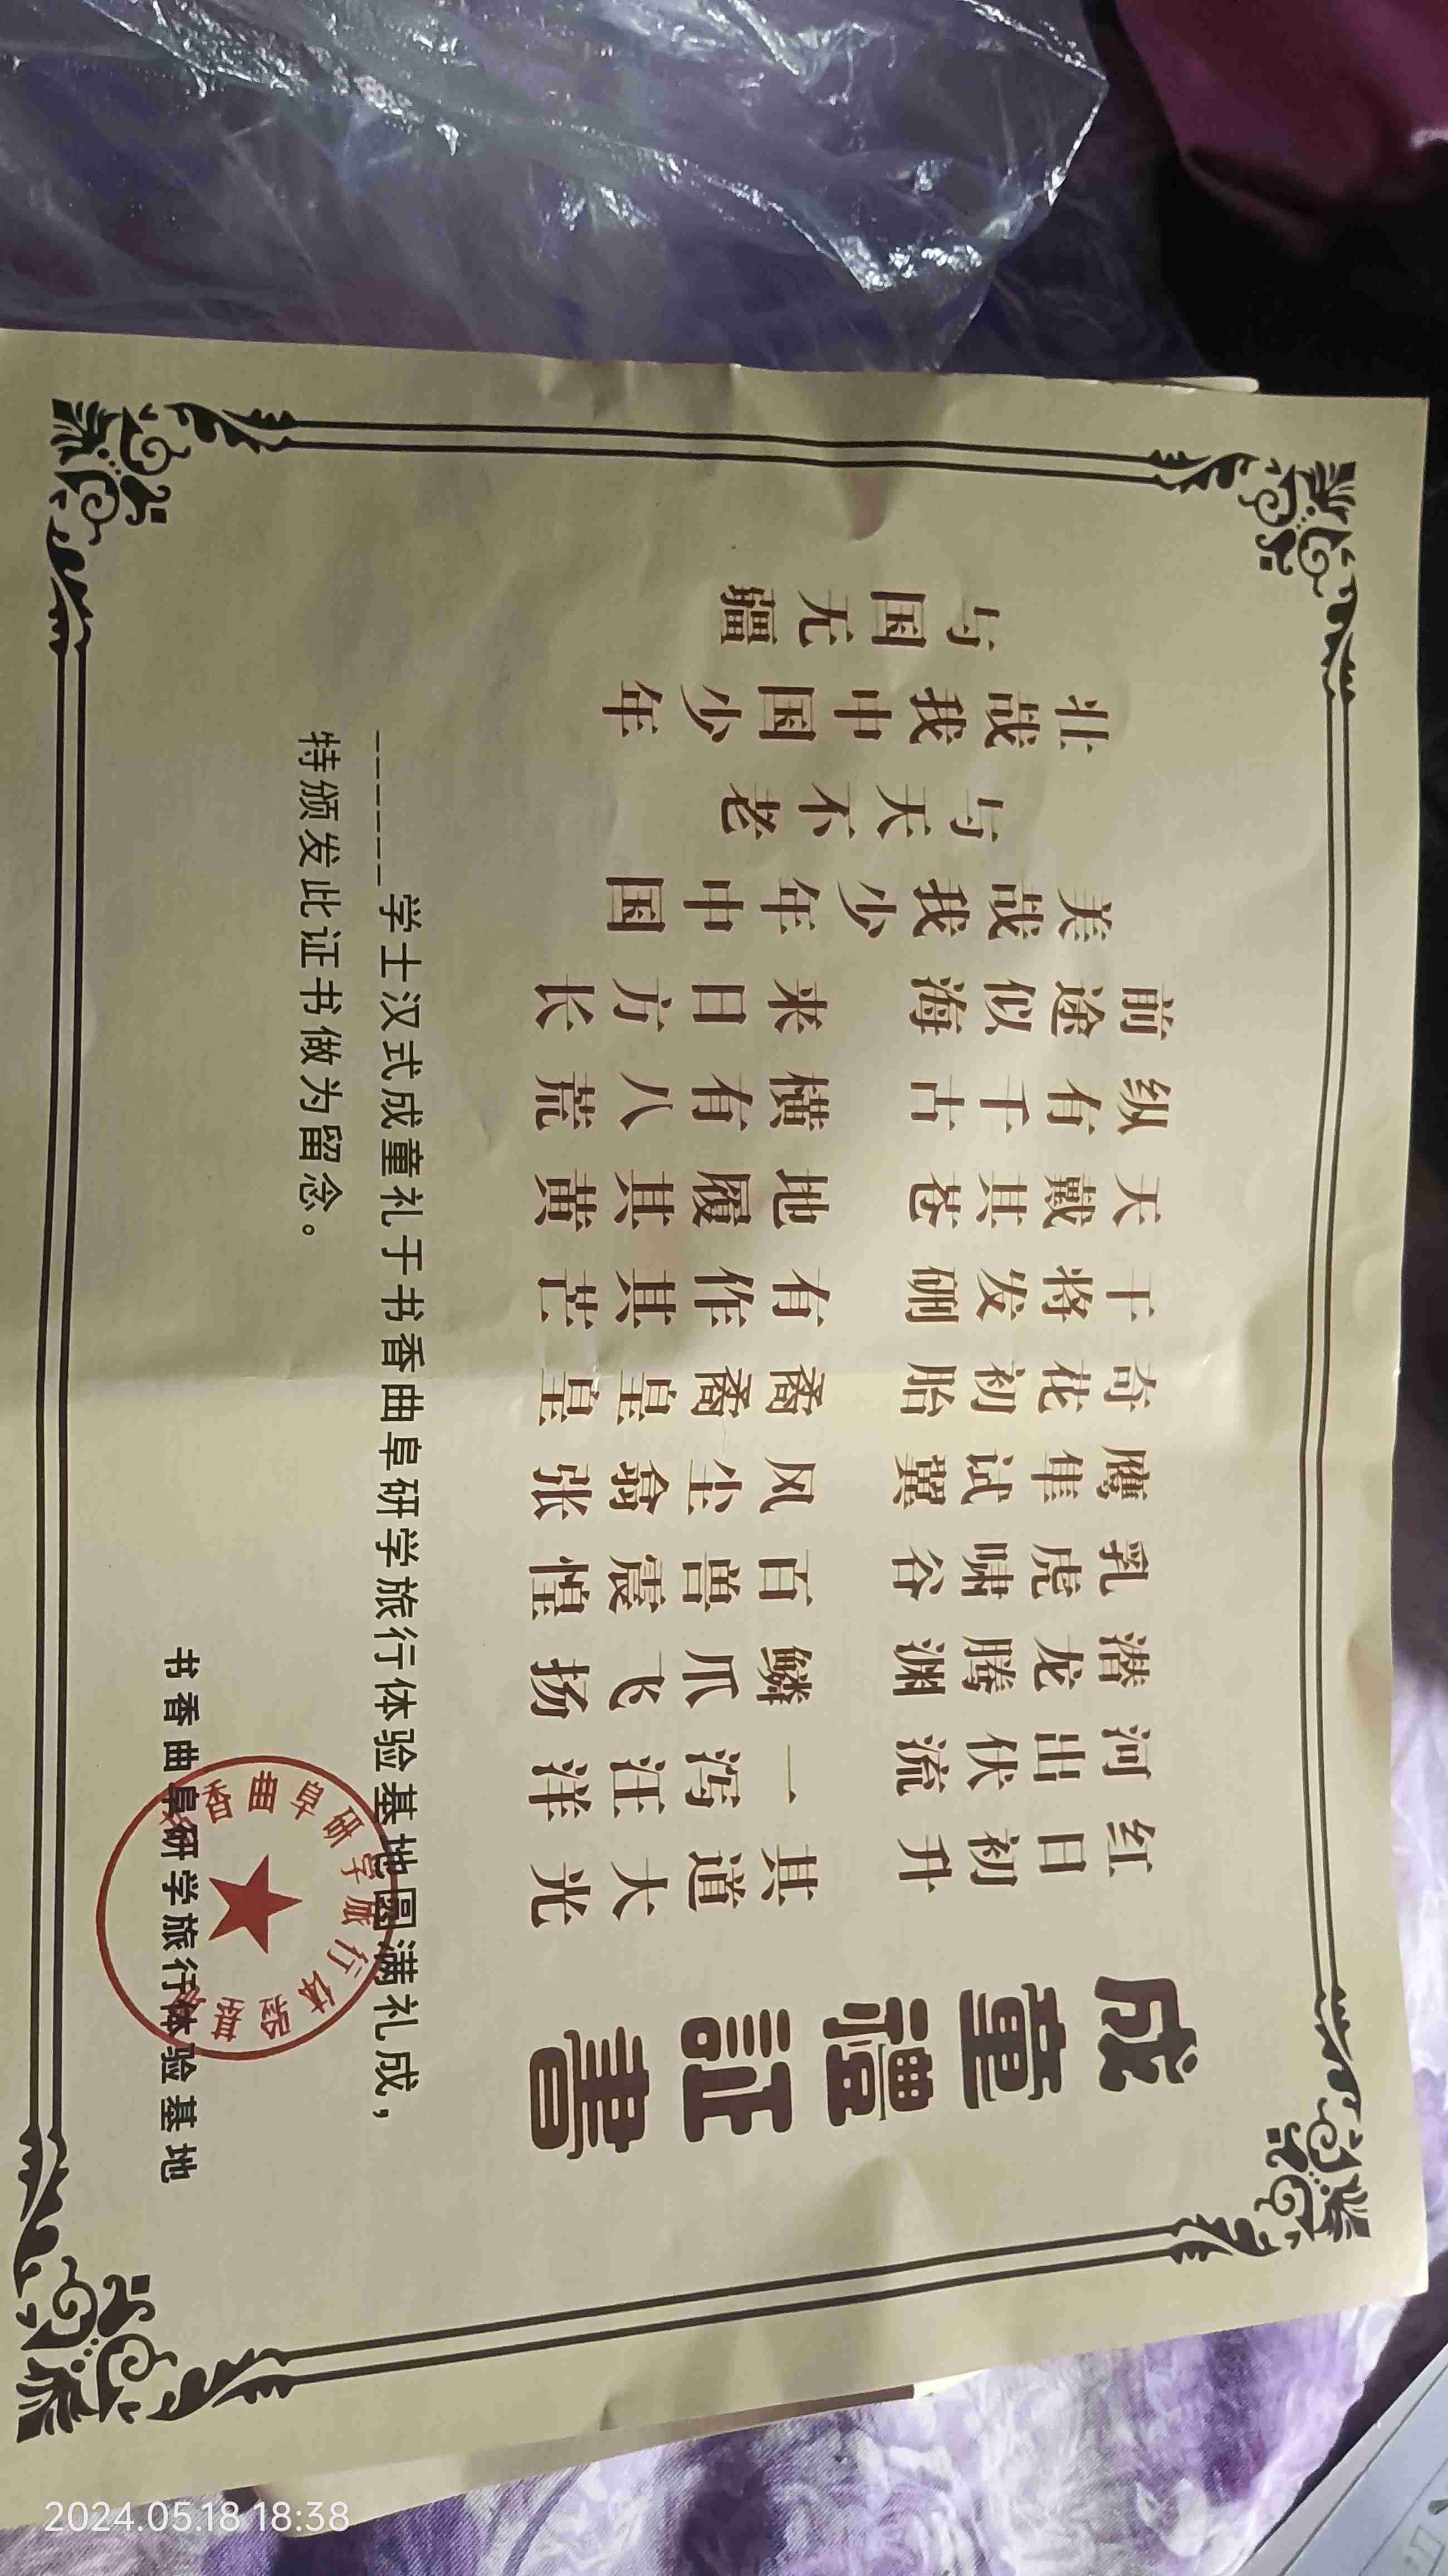 成童禮証書
红日初升 其道大光
河出伏流 一泻汪洋
潜龙腾渊 鳞爪飞扬
乳虎啸谷 百兽震惶
鹰隼试翼 风尘翕张
奇花初胎 矞矞皇皇
干将发硎 有作其芒
天戴其苍 地履其黄
纵有千古 横有八荒
前途似海 来日方长
美哉我少年中国
与天不老
壮哉我中国少年
与国无疆
______学士汉式成童礼于书香曲阜研学旅行体验基地圆满礼成，
特颁发此证书做为留念。
书香曲阜研学旅行体验基地
书香曲阜研学旅行体验基地
2024.05.18 18:38